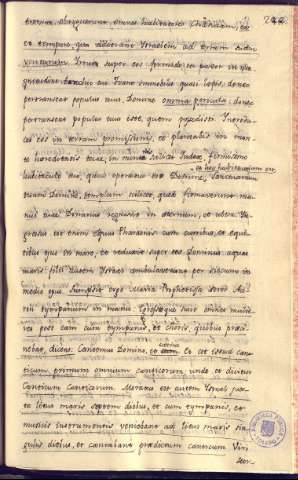 242
eorum obriguerunt omnes habitatores Chanaam, ex
eo tempore, quo viderunt Israelem ad
Irruat super eos formido, et pavor in ma
gnitudine brachii tui. Fiant immobiles quasi lapis, donec
pertranseat populus tuus, Domine, donec
pertranseat populus tuus iste, quem possedisti. Introdu
ces eos in terram promissionis, et plantabis in mon
te hereditatis tuae, in monte scilicet Judeae, firmissimo
habitaculo tuo, quod operatus es Domine, Sanctuarium
tuum Domine, templum scilicet, quod firmaverunt ma
nus tuae. Dominus regnavit in aeternum, et ultra. In
gressus est enim Equus Pharaonis cum curribus, et equi
tibus suo in mare, et reduxit super eos Dominus aquas
maris: filii autem Israel ambulaverunt per siccum in
medio eius. Sumpsit ergo Maria Prophetissa soror Aa
ron tympanum in manu sua omnes mulie
res post eam cum tympanis, et choris, quibus prae
cinebat, dicens: Cantemus Domino, et caetera. Et est istud can
ticum primum omnium canticorum, unde et dicitur
Canticum Canticorum. Moratus est autem Israel jux
ta litus maris septem diebus, et cum tympanis, et
musicis instrumentis veniebat ad litus maris sin
gulis diebus, et cantabant praedictum canticum. Vin